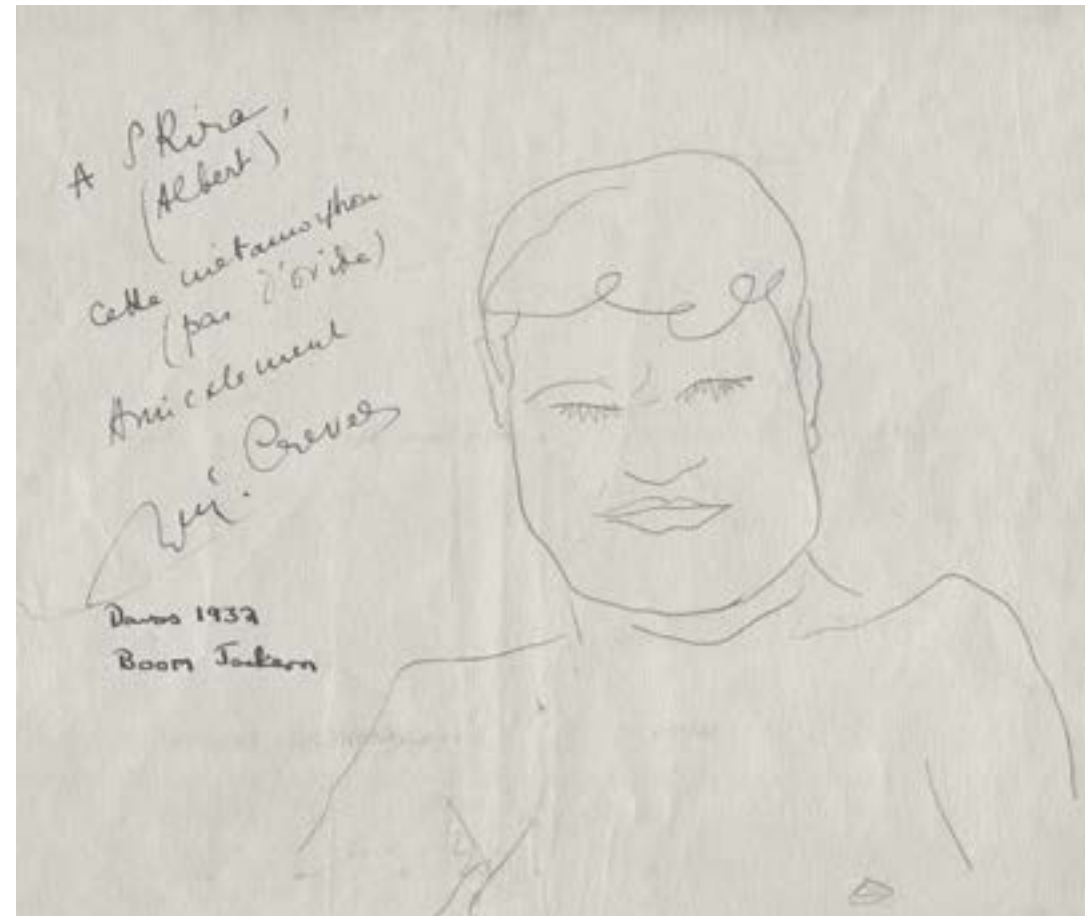 A SKira,
(Albert)
cette métamorphose
(pas d'Ovide)
Amicalement
René Crevel
Davos 1932
Boom